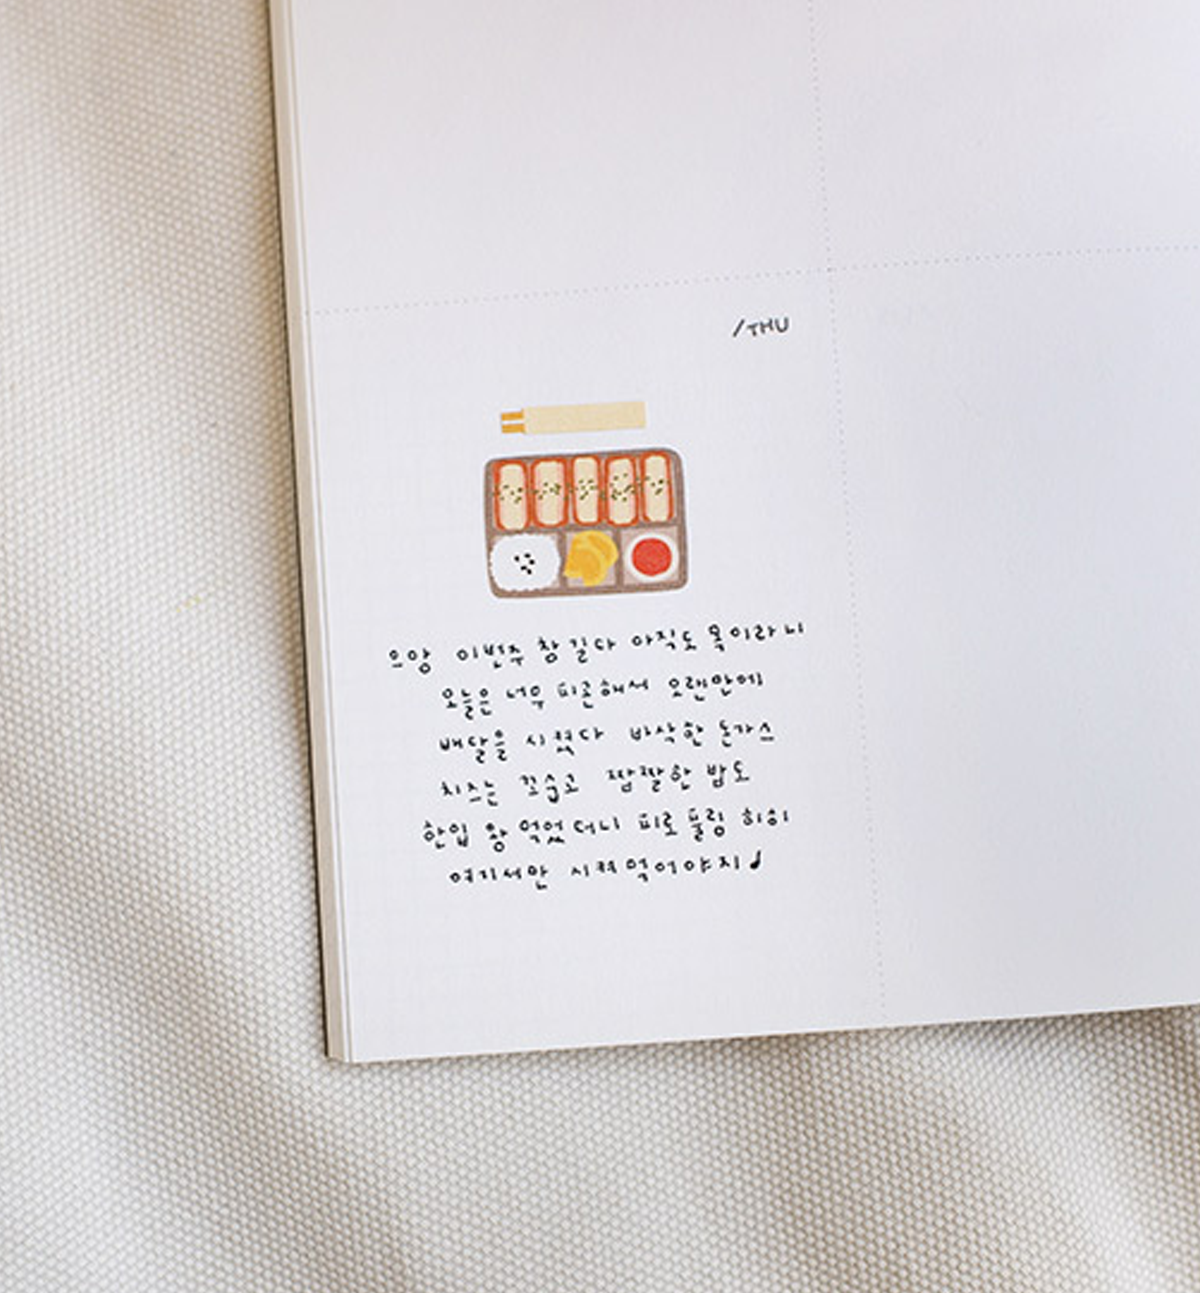 /THU
으앙 이번주 참 길다 아직도 목이라니
오늘은 너무 피곤해서 오랜만에
배달을 시켰다 바삭한 돈가스
치즈는 꼬숩고 짭짤한 밥도
한입 왕 먹었더니 피로 풀림 히히
여기서만 시켜먹어야지♩